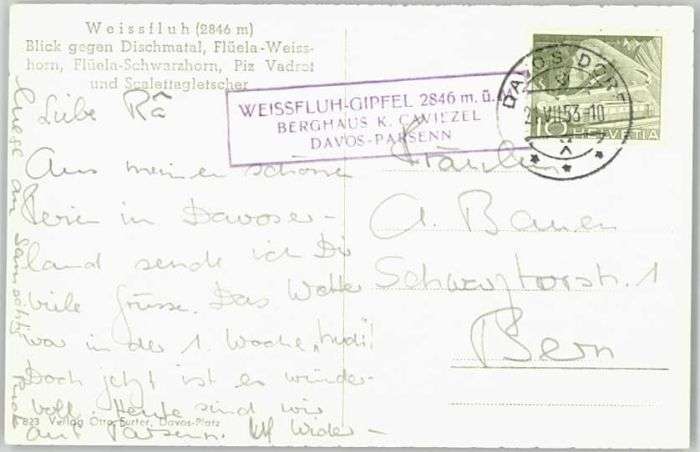 Weissfluh (2846 m)
Blick gegen Dischmatal, Flüela-Weiss-
horn, Flüela-Schwarzhorn, Piz Vadret
und Scalettagletscher
WEISSFLUH-GIPFEL 2846 m. ü.
BERGHAUS K. CAVIEZEL
DAVOS-PARSENN
DAVOS DORF
VII 53-10
10 HELVETIA
Liebe Rä
Aus meinen schönen
Ferien in Davoser-
land sende ich Dir
viele Grüsse. Das Wetter
war in der 1. Woche
Doch jetzt ist es wunder-
voll. Heute sind wir
auf Parsenn. Auf Wider-
Grüsse an
Fräulein
A.
Schwarztorstr. 1
Bern
823 Verlag Otto Furter, Davos-Platz